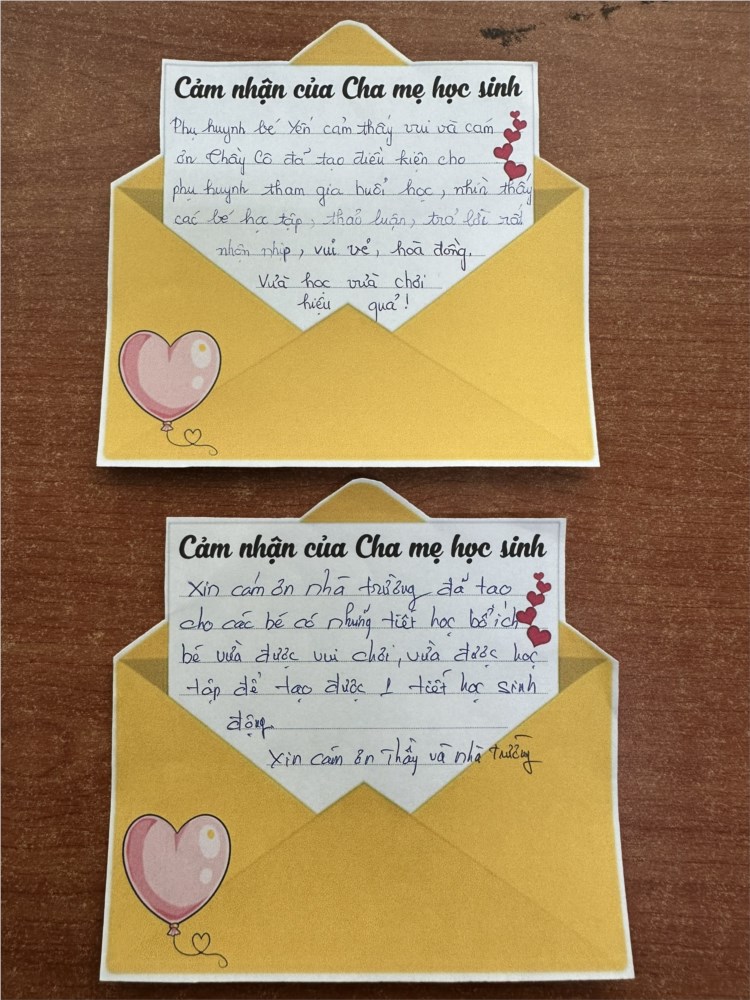 Cảm nhận của Cha mẹ học sinh
Phụ huynh bé Yến cảm thấy vui và cảm
ơn Thầy Cô đã tạo điều kiện cho
phụ huynh tham gia buổi học, nhìn thấy
các bé học tập, thảo luận, trả lời rất
nhộn nhịp, vui vẻ, hoà đồng.
Vừa học vừa chơi
hiệu quả!
Cảm nhận của Cha mẹ học sinh
Xin cám ơn nhà trường đã tạo
cho các bé có những tiết học bổ ích
bé vừa được vui chơi, vừa được học
tập để tạo được 1 tiết học sinh
động.
Xin cám ơn Thầy và nhà trường